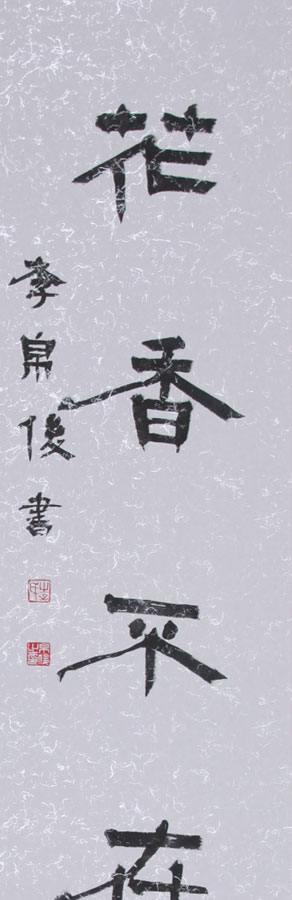 花香不在
李帛俊書